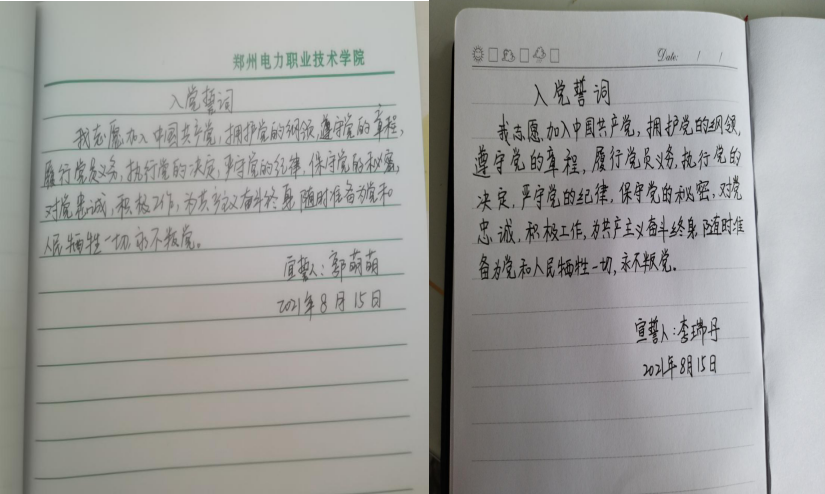 郑州电力职业技术学院
入党誓词
我志愿加入中国共产党，拥护党的纲领，遵守党的章程，
履行党员义务，执行党的决定，严守党的纪律，保守党的秘密，
对党忠诚，积极工作，为共产主义奋斗终身，随时准备为党和
人民牺牲一切，永不叛党。
宣誓人：郭萌萌
2021年8月15日
Date: / /
入党誓词
我志愿加入中国共产党，拥护党的纲领，
遵守党的章程，履行党员义务，执行党的
决定，严守党的纪律，保守党的秘密，对党
忠诚，积极工作，为共产主义奋斗终身，随时准
备为党和人民牺牲一切，永不叛党。
宣誓人：李瑞丹
2021年8月15日